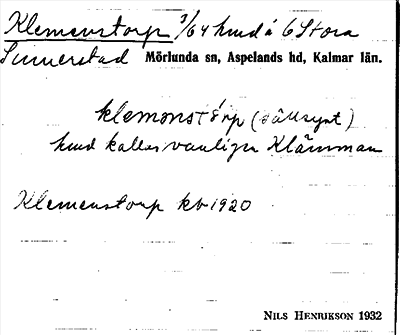 Klemenstorp 3/64 hmd å 6 Stora
Sinnerstad Mörlunda sn, Aspelands hd, Kalmar län.
klemonstórp (sällsynt)
hmd kallas vanligen Klämman
Klemenstorp kb 1920
NILS HENRIKSON 1932